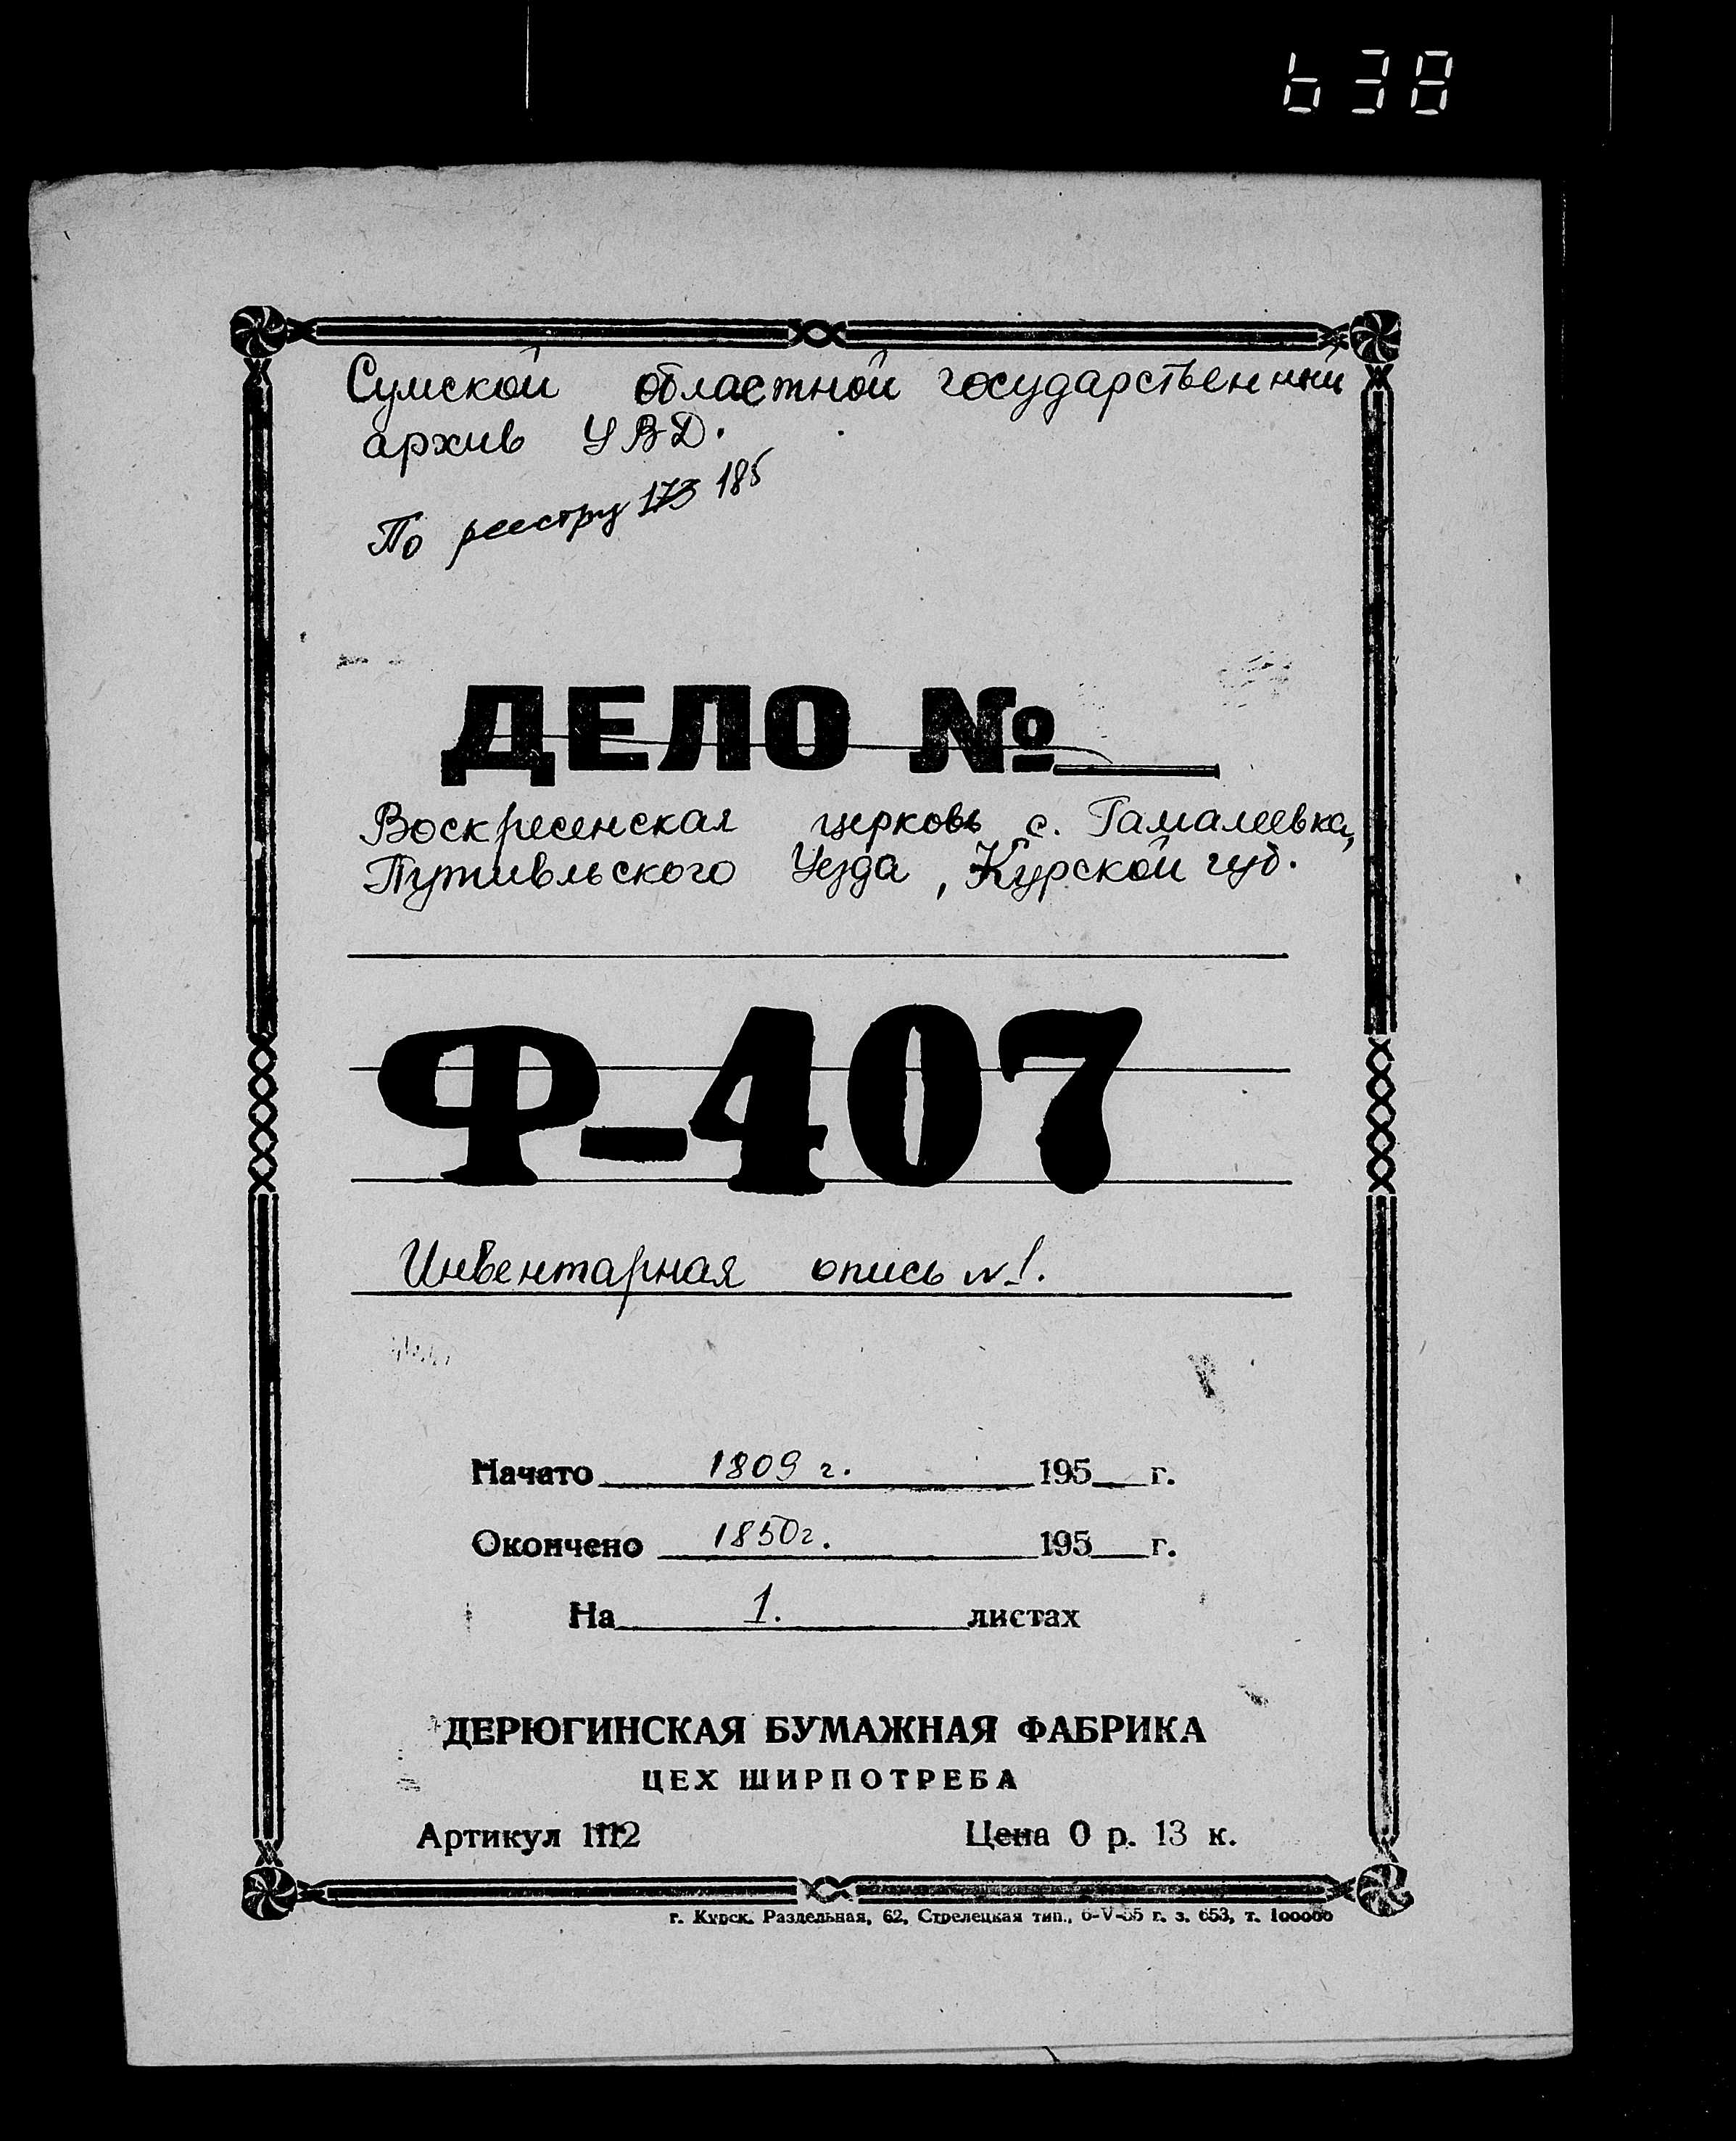 638
Сумской областной государственный
архив УВД.
По реестру 173 185
ДЕЛО №
Воскресенская церковь с. Гамалеевка,
Путивльского Уезда, Курской губ.
Ф-407
Инвентарная опись №1.
Начато 1809 г. 195 г.
Окончено 1850г. 195 г.
На 1. листах
ДЕРЮГИНСКАЯ БУМАЖНАЯ ФАБРИКА
ЦЕХ ШИРПОТРЕБА
Артикул 1112 Цена 0 р. 13 к.
г. Курск. Раздельная, 62, Стрелецкая тип., 6-V-65 г. з. 653, т. 100000